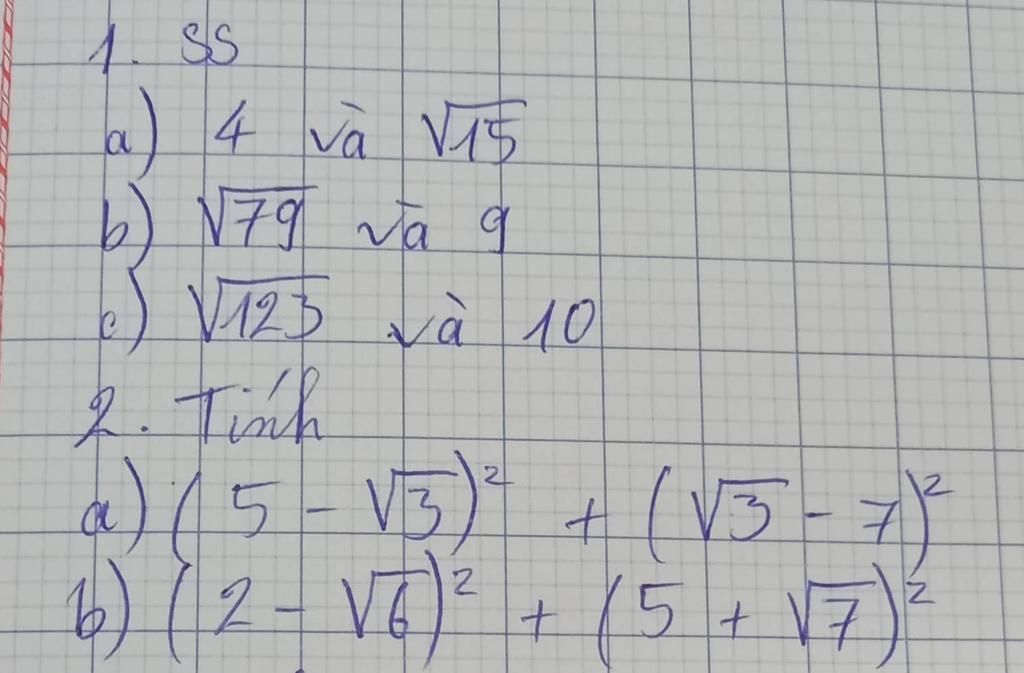 1. SS
a) 4 và √15
b) √79 và 9
c) √123 và 10
2. Tính
a) (5 - √3)² + (√3 - 7)²
b) (2 - √6)² + (5 + √7)²